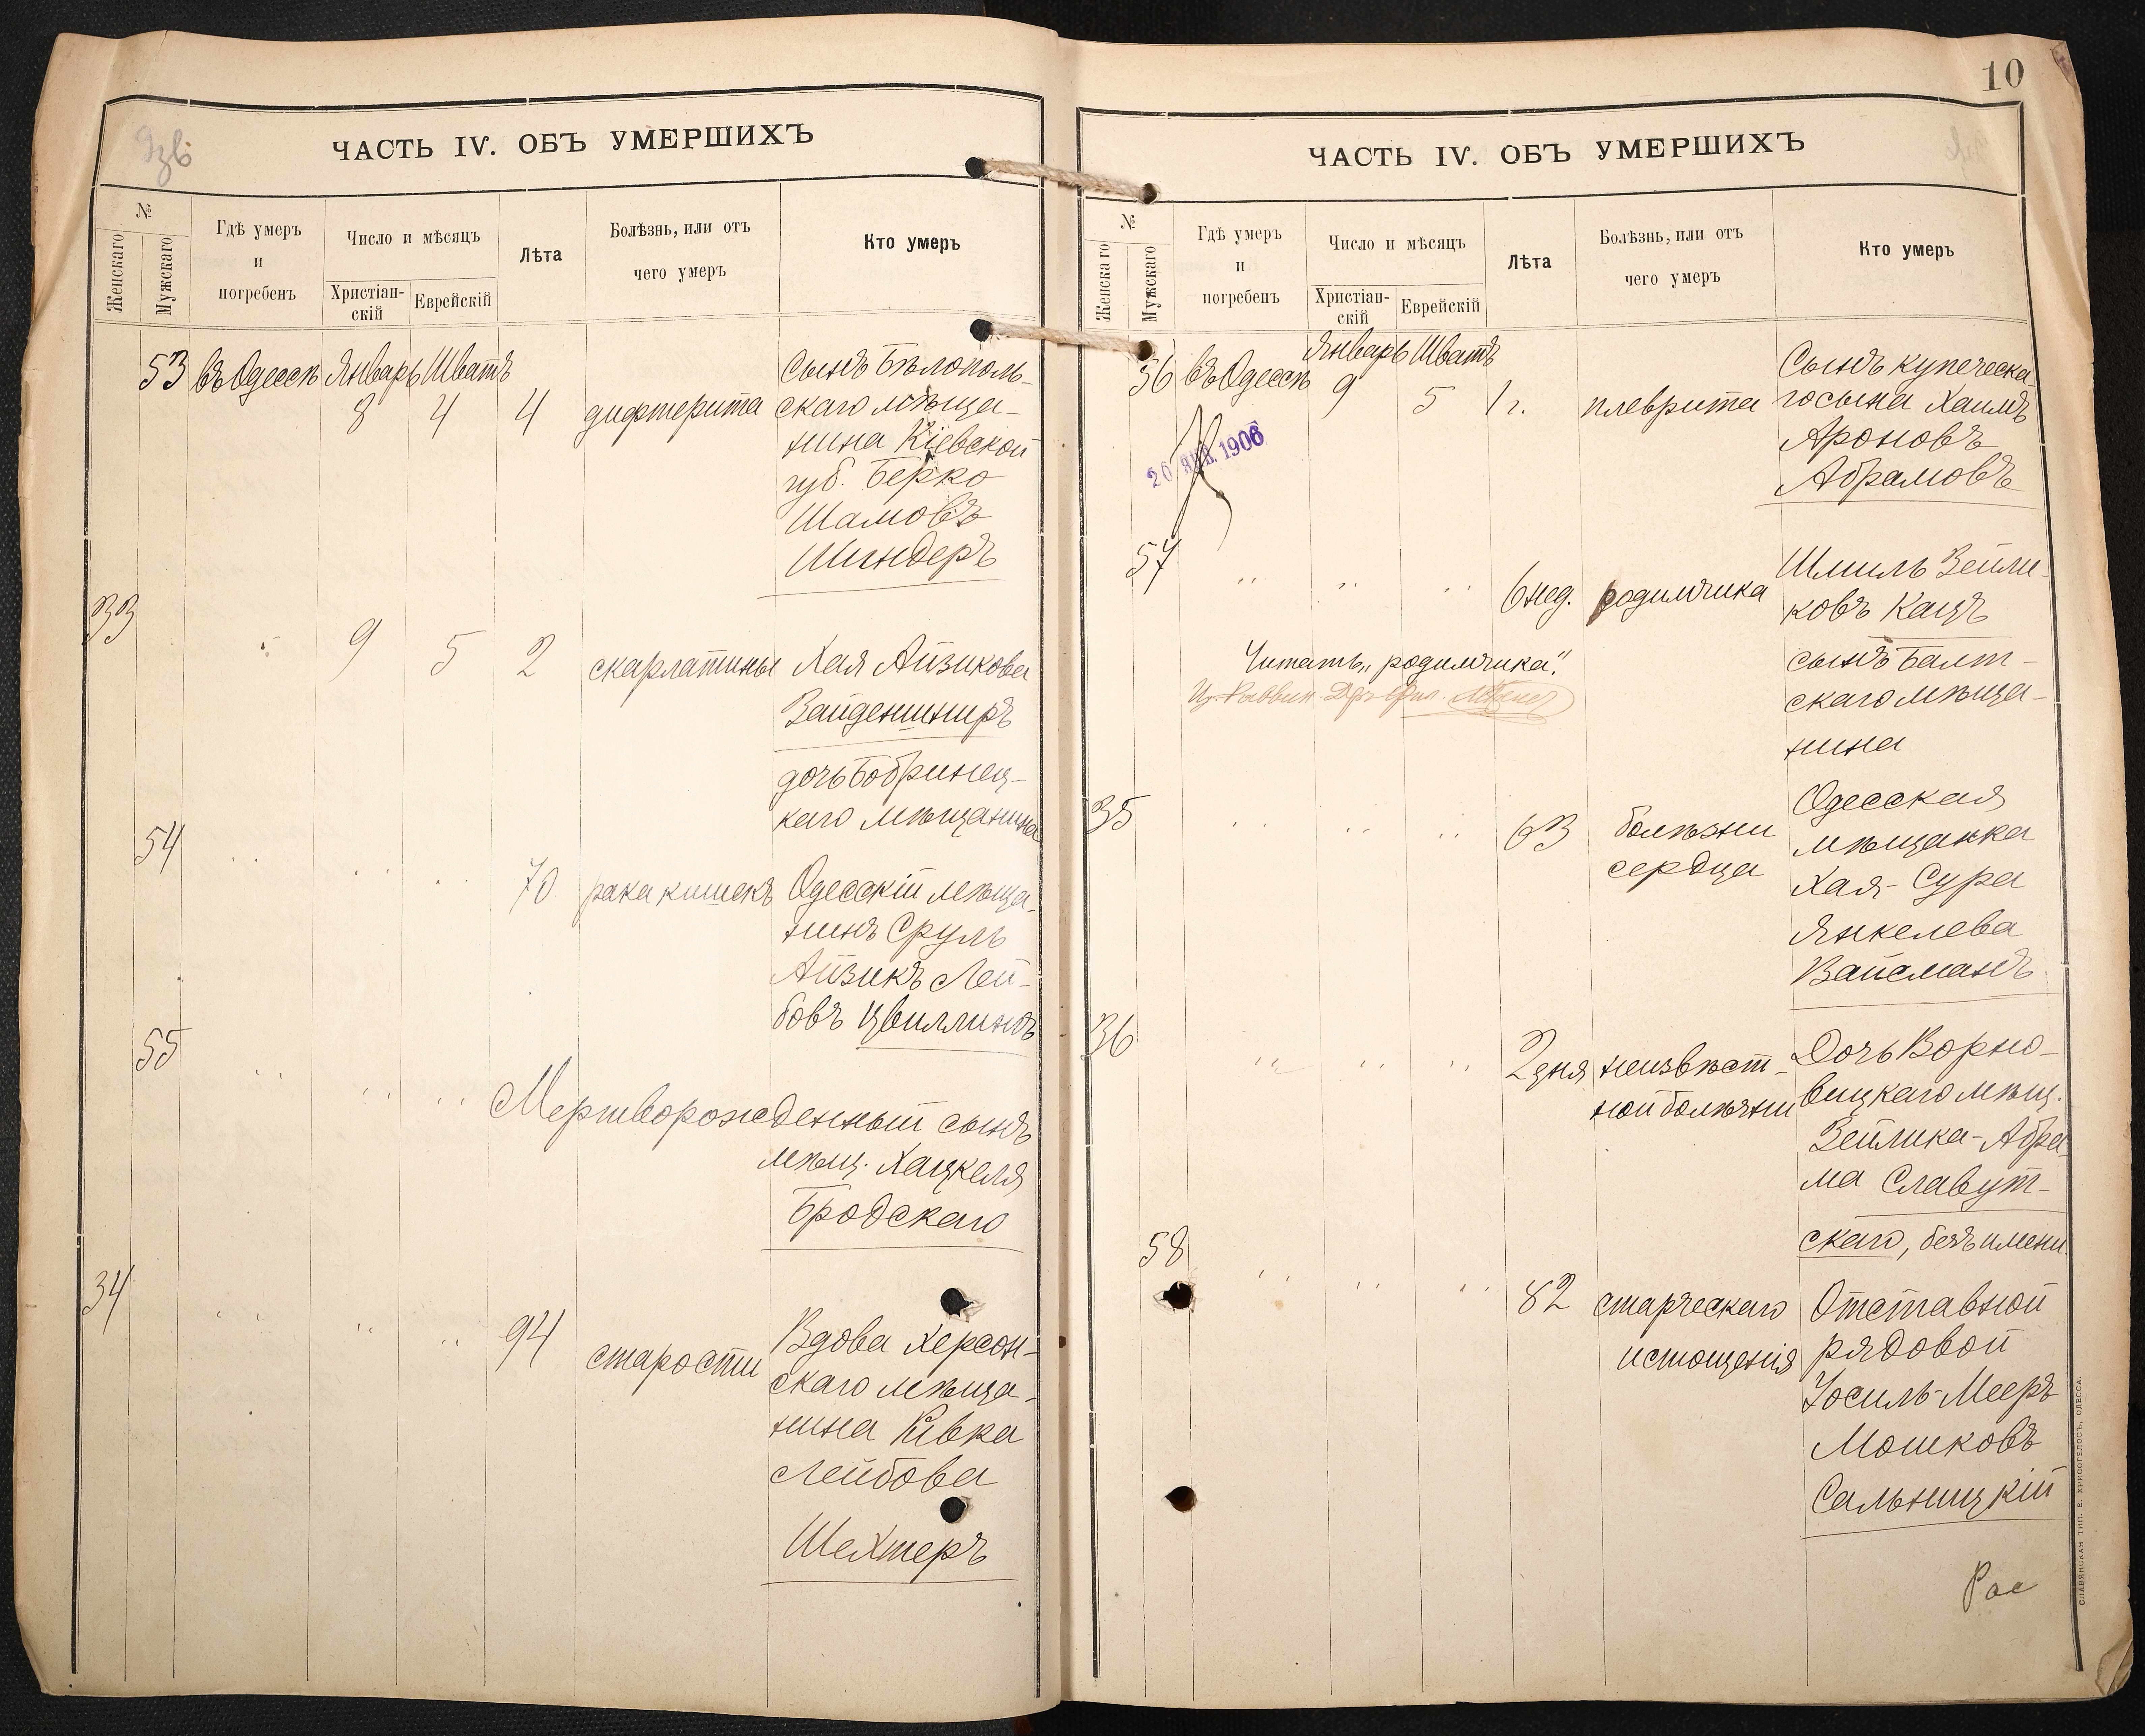 ЧАСТЬ IV. ОБЪ УМЕРШИХЪ
№
Женскаго
Мужскаго
Гдѣ умеръ
и
погребенъ
Число и мѣсяцъ
Христіан-
скій
Еврейскій
Лѣта
Болѣзнь, или отъ
чего умеръ
Кто умеръ
53 въ Одессѣ Январь Шватъ Сынъ Бѣлополь-
8 4 4 дифтерита скаго мѣща-
нина Кіевской
губ. Берко
Шамовъ
Шиндеръ
33
" 9 5 2 скарлатины Хая Айзикова
Вайденшниръ
дочь Бобринец-
каго мѣщанина
54 " " "
70 рака кишекъ Одесскій мѣща-
нинъ Сруль
Айзикъ Лей-
бовъ Цвиллингъ
55
" " " Мертворожденный сынъ
мѣщ. Хацкеля
Бродскаго
34
" " " 94 старости Вдова Херсон-
скаго мѣща-
нина Ривка
Лейбова
Шехтеръ
10
ЧАСТЬ IV. ОБЪ УМЕРШИХЪ
№
Женскаго
Мужскаго
Гдѣ умеръ
и
погребенъ
Число и мѣсяцъ
Христіан-
скій
Еврейскій
Лѣта
Болѣзнь, или отъ
чего умеръ
Кто умеръ
Январь Шватъ
56 въ Одессѣ 9 5 1 г. плеврита Сынъ купеческа-
го сына Хаимъ
Ароновъ
Абрамовъ
20 ЯНВ. 1906
57
" " " 6 нед. родимчика Шмиль Зейли-
ковъ Кацъ
сынъ Балт-
скаго мѣща-
нина
Читать „родимчика".
35
" " " 63 болѣзни Одесская
сердца мѣщанка
Хая-Сура
Янкелева
Вайсманъ
36
" " " 2 дня неизвѣст- Дочь Ворно-
ной болѣзни вицкаго мѣщ.
Зейлика-Абра-
ма Славут-
скаго, безъ имени
58
" " " 82 старческаго Отставной
истощенія рядовой
Іосиль-Мееръ
Мошковъ
Сальницкій
Рас
СЛАВЯНСКАЯ ТИП. Е. ХРИСОГЕЛОСЪ, ОДЕССА.